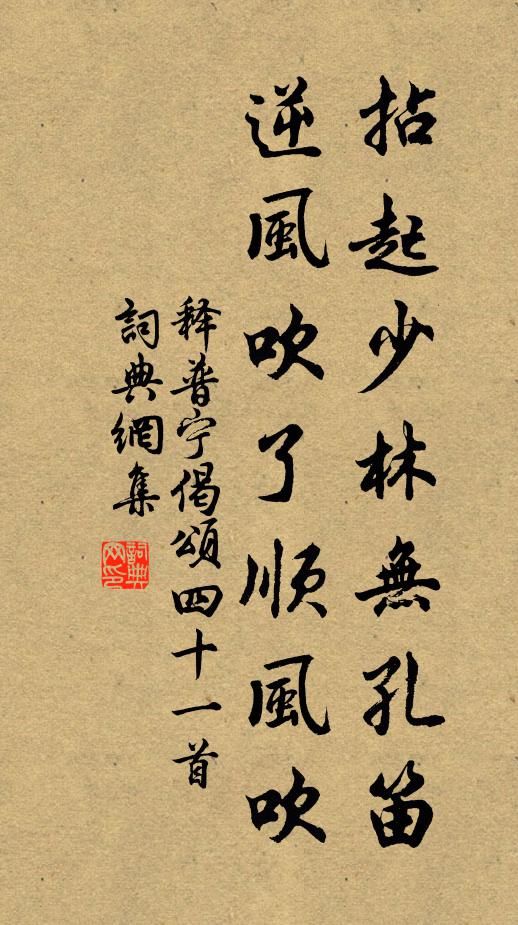 拈起少林無孔笛
逆風吹了順風吹
释普宁偈頌四十一首
詞典網集
詞典網印